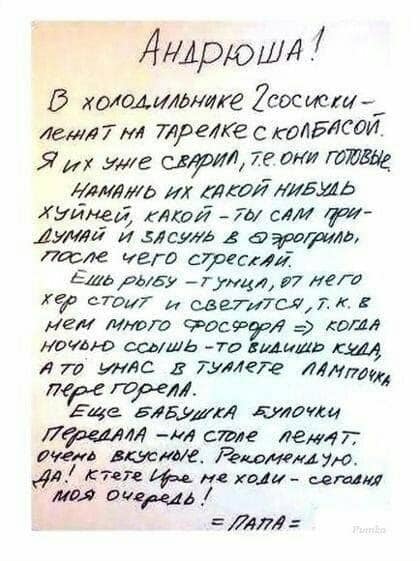 Андрюша!
В холодильнике 2 сосиски –
лежат на тарелке с колбасой.
Я их уже сварил, т.е. они готовые.
Намажь их какой нибудь
хуйней, какой – ты сам при-
думай и засунь в аэрогриль,
после чего стрескай.
Ешь рыбу – тунца, от него
хер стоит и светится, т.к. в
нем много фосфора => когда
ночью ссышь – то видишь куда,
а то унас в туалете лампочка
перегорела.
Еще бабушка булочки
передала – на столе лежат,
очень вкусные. Рекомендую.
Да! К тете Ире не ходи – сегодня
моя очередь!
= Папа =
Pumka